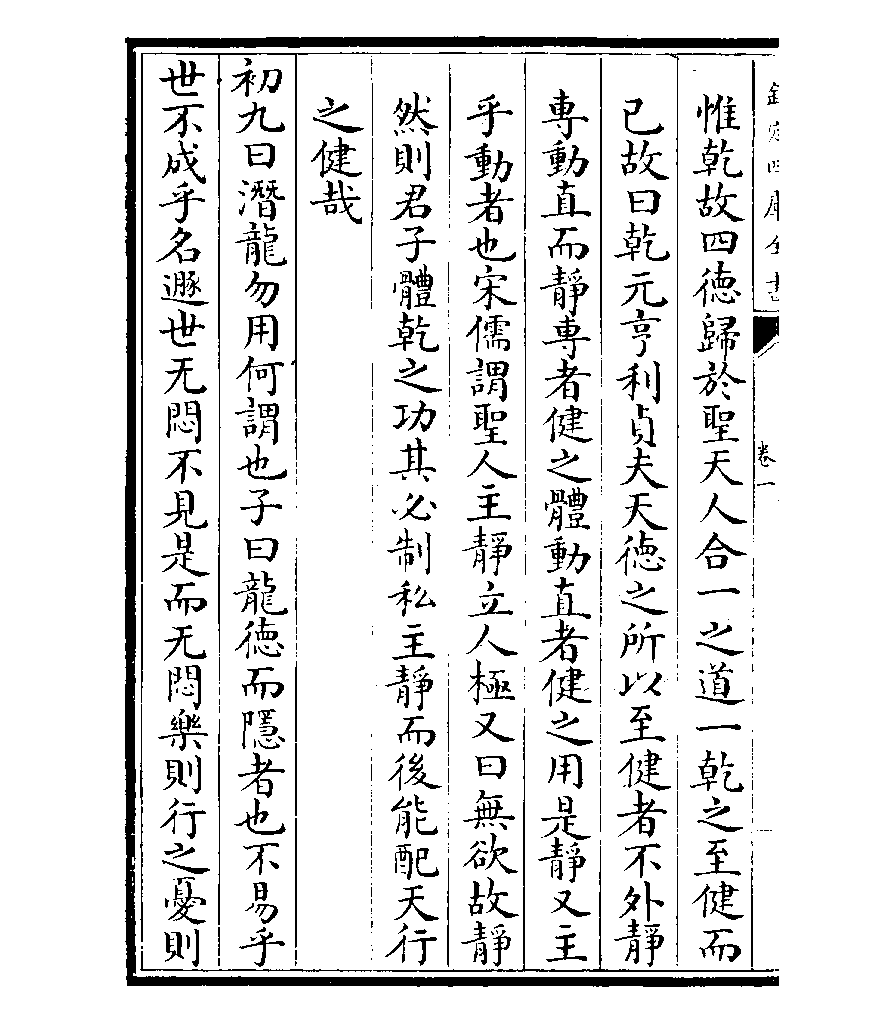 欽定四庫全書
卷一
惟乾故四德歸於聖天人合一之道一乾之至健而
已故曰乾元亨利貞夫天德之所以至健者不外靜
専動直而靜専者健之體動直者健之用是靜又主
乎動者也宋儒謂聖人主靜立人極又曰無欲故靜
然則君子體乾之功其必制私主靜而後能配天行
之健哉
初九曰潛龍勿用何謂也子曰龍德而隱者也不易乎
世不成乎名遯世无悶不見是而无悶樂則行之憂則